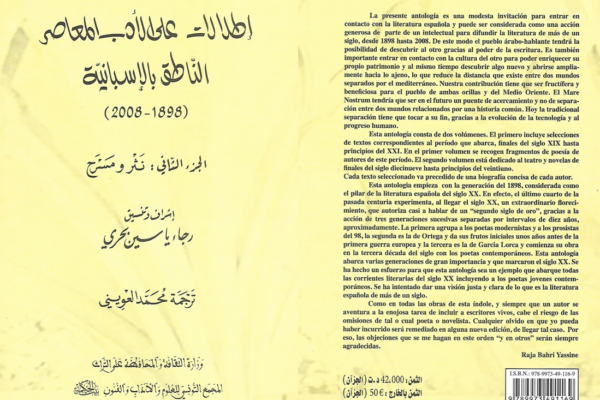 إطلالات على الأدب المعاصر
الناطق بالإسبانية
(1898-2008)
الجزء الثاني: نثر ومسرح
إشراف وتنسيق
رجاء ياسين بحري
ترجمة محمد العويني
وزارة الثقافة والمحافظة على التراث
المجمع التونسي للعلوم والآداب والفنون بيت الحكمة
La presente antología es una modesta invitación para entrar en
contacto con la literatura española y puede ser considerada como una acción
generosa de parte de un intelectual para difundir la literatura de más de un
siglo, desde 1898 hasta 2008. De este modo el pueblo árabo-hablante tendrá la
posibilidad de descubrir al otro gracias al poder de la escritura. Es también
importante entrar en contacto con la cultura del otro para poder enriquecer su
propio patrimonio y al mismo tiempo descubrir algo nuevo y abrirse amplia-
mente hacia lo ajeno, lo que reduce la distancia que existe entre dos mundos
separados por el mediterráneo. Nuestra contribución tiene que ser fructífera y
beneficiosa para el pueblo de ambas orillas y del Medio Oriente. El Mare
Nostrum tendría que ser en el futuro un puente de acercamiento y no de separa-
ción entre dos mundos relacionados por una historia común. Hoy la tradicional
separación tiene que tocar a su fin, gracias a la evolución de la tecnología y al
progreso humano.
Esta antología consta de dos volúmenes. El primero incluye selecciones
de textos correspondientes al período que abarca, finales del siglo XIX hasta
principios del XXI. En el primer volumen se recogen fragmentos de poesía de
autores de este período. El segundo volumen está dedicado al teatro y novelas de
finales del siglo diecinueve hasta principios del veintiuno.
Cada texto seleccionado va precedido de una biografía concisa de cada autor.
Esta antología empieza con la generación del 1898, considerada como
el pilar de la literatura española del siglo XX. En efecto, el último cuarto de la
pasada centuria experimenta, al llegar el siglo XX, un extraordinario floreci-
miento, que autoriza casi a hablar de un "segundo siglo de oro", gracias a la
acción de tres generaciones sucesivas separadas por intervalos de diez años,
aproximadamente. La primera agrupa a los poetas modernistas y a los prosistas
del 98, la segunda es la de Ortega y da sus frutos iniciales unos años antes de la
primera guerra europea y la tercera es la de García Lorca y comienza su obra
en la tercera década del siglo con los poetas contemporáneos. Esta antología
abarca varias generaciones de gran importancia y que marcaron el siglo XX. Se
ha hecho un esfuerzo para que esta antología sea un ejemplo que abarque todas
las corrientes literarias del siglo XX incluyendo a los poetas jovenes contem-
poráneos. Se ha intentado dar una visión justa y clara de lo que es la literatura
española de más de un siglo.
Como en todas las obras de esta índole, y siempre que un autor se
aventura a la enojosa tarea de incluir a escritores vivos, cabe el riesgo de las
omisiones de tal o cual poeta o novelista. Cualquier olvido en que yo pueda
haber incurrido será remediado en alguna nueva edición, de llegar tal caso. Por
eso, las objeciones que se me hagan en este orden "y en otros" serán siempre
agradecidas.
Raja Bahri Yassine
I.S.B.N.: 978-9973-49-116-9
الثمن: 42،000 د.ت (الجزآن)
الثمن بالخارج: 50€ (الجزآن)
9789973491169